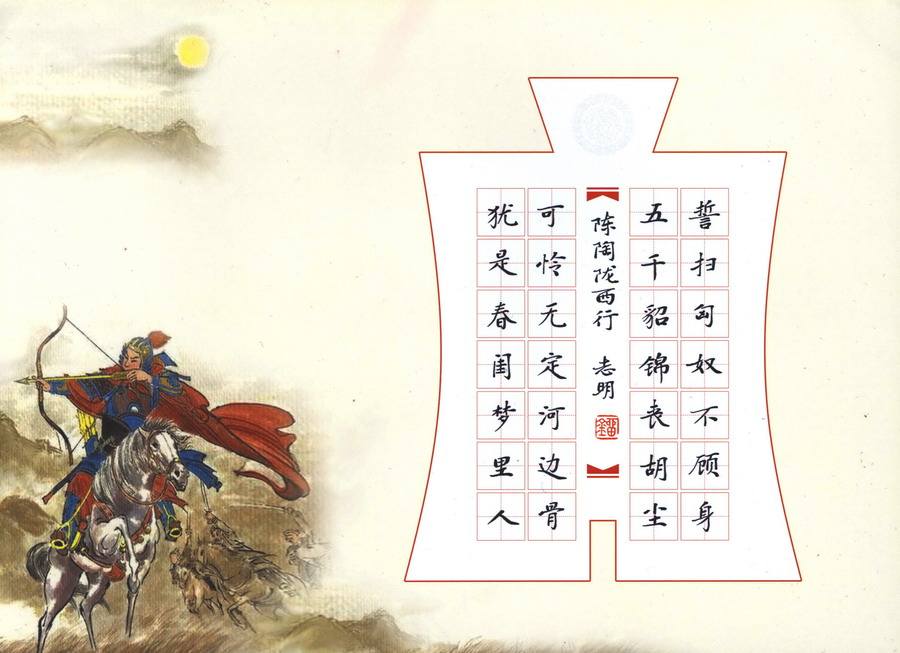 誓扫匈奴不顾身
五千貂锦丧胡尘
陈陶陇西行 志明
可怜无定河边骨
犹是春闺梦里人